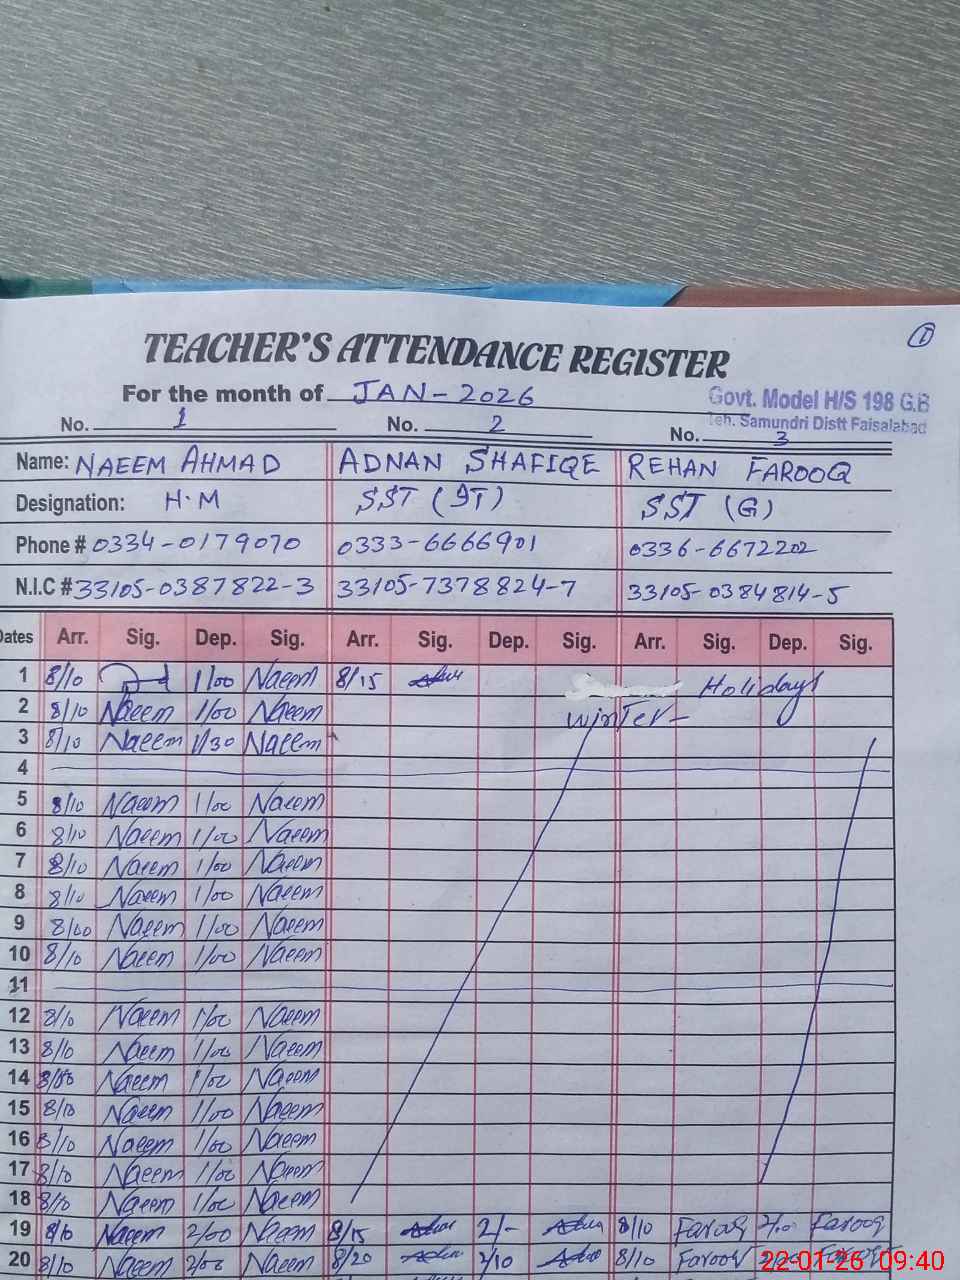 ①
TEACHER'S ATTENDANCE REGISTER
For the month of JAN-2026
Govt. Model H/S 198 G.B
Teh. Samundri Distt Faisalabad
No. 1 No. 2 No. 3
Name: NAEEM AHMAD ADNAN SHAFIQE REHAN FAROOQ
Designation: H.M SST (IT) SST (G)
Phone # 0334-0179070 0333-6666901 0336-6672202
N.I.C # 33105-0387822-3 33105-7378824-7 33105-0384814-5
Dates Arr. Sig. Dep. Sig. Arr. Sig. Dep. Sig. Arr. Sig. Dep. Sig.
1 8/10 1/00 Naeem 8/15 Holidays
2 8/10 Naeem 1/00 Naeem Winter-
3 8/10 Naeem 1/30 Naeem
4
5 8/10 Naeem 1/00 Naeem
6 8/10 Naeem 1/00 Naeem
7 8/10 Naeem 1/00 Naeem
8 8/10 Naeem 1/00 Naeem
9 8/00 Naeem 1/00 Naeem
10 8/10 Naeem 1/00 Naeem
11
12 8/10 Naeem 1/00 Naeem
13 8/10 Naeem 1/00 Naeem
14 Naeem 1/00 Naeem
15 8/10 Naeem 1/00 Naeem
16 8/10 Naeem 1/00 Naeem
17 8/10 Naeem 1/00 Naeem
18 8/10 Naeem 1/00 Naeem
19 8/10 Naeem 2/00 Naeem 8/15 2/- 8/10 Farooq 2/00 Farooq
20 8/10 Naeem 2/00 Naeem 8/20 2/10 8/10 Farooq
22-01-26 09:40